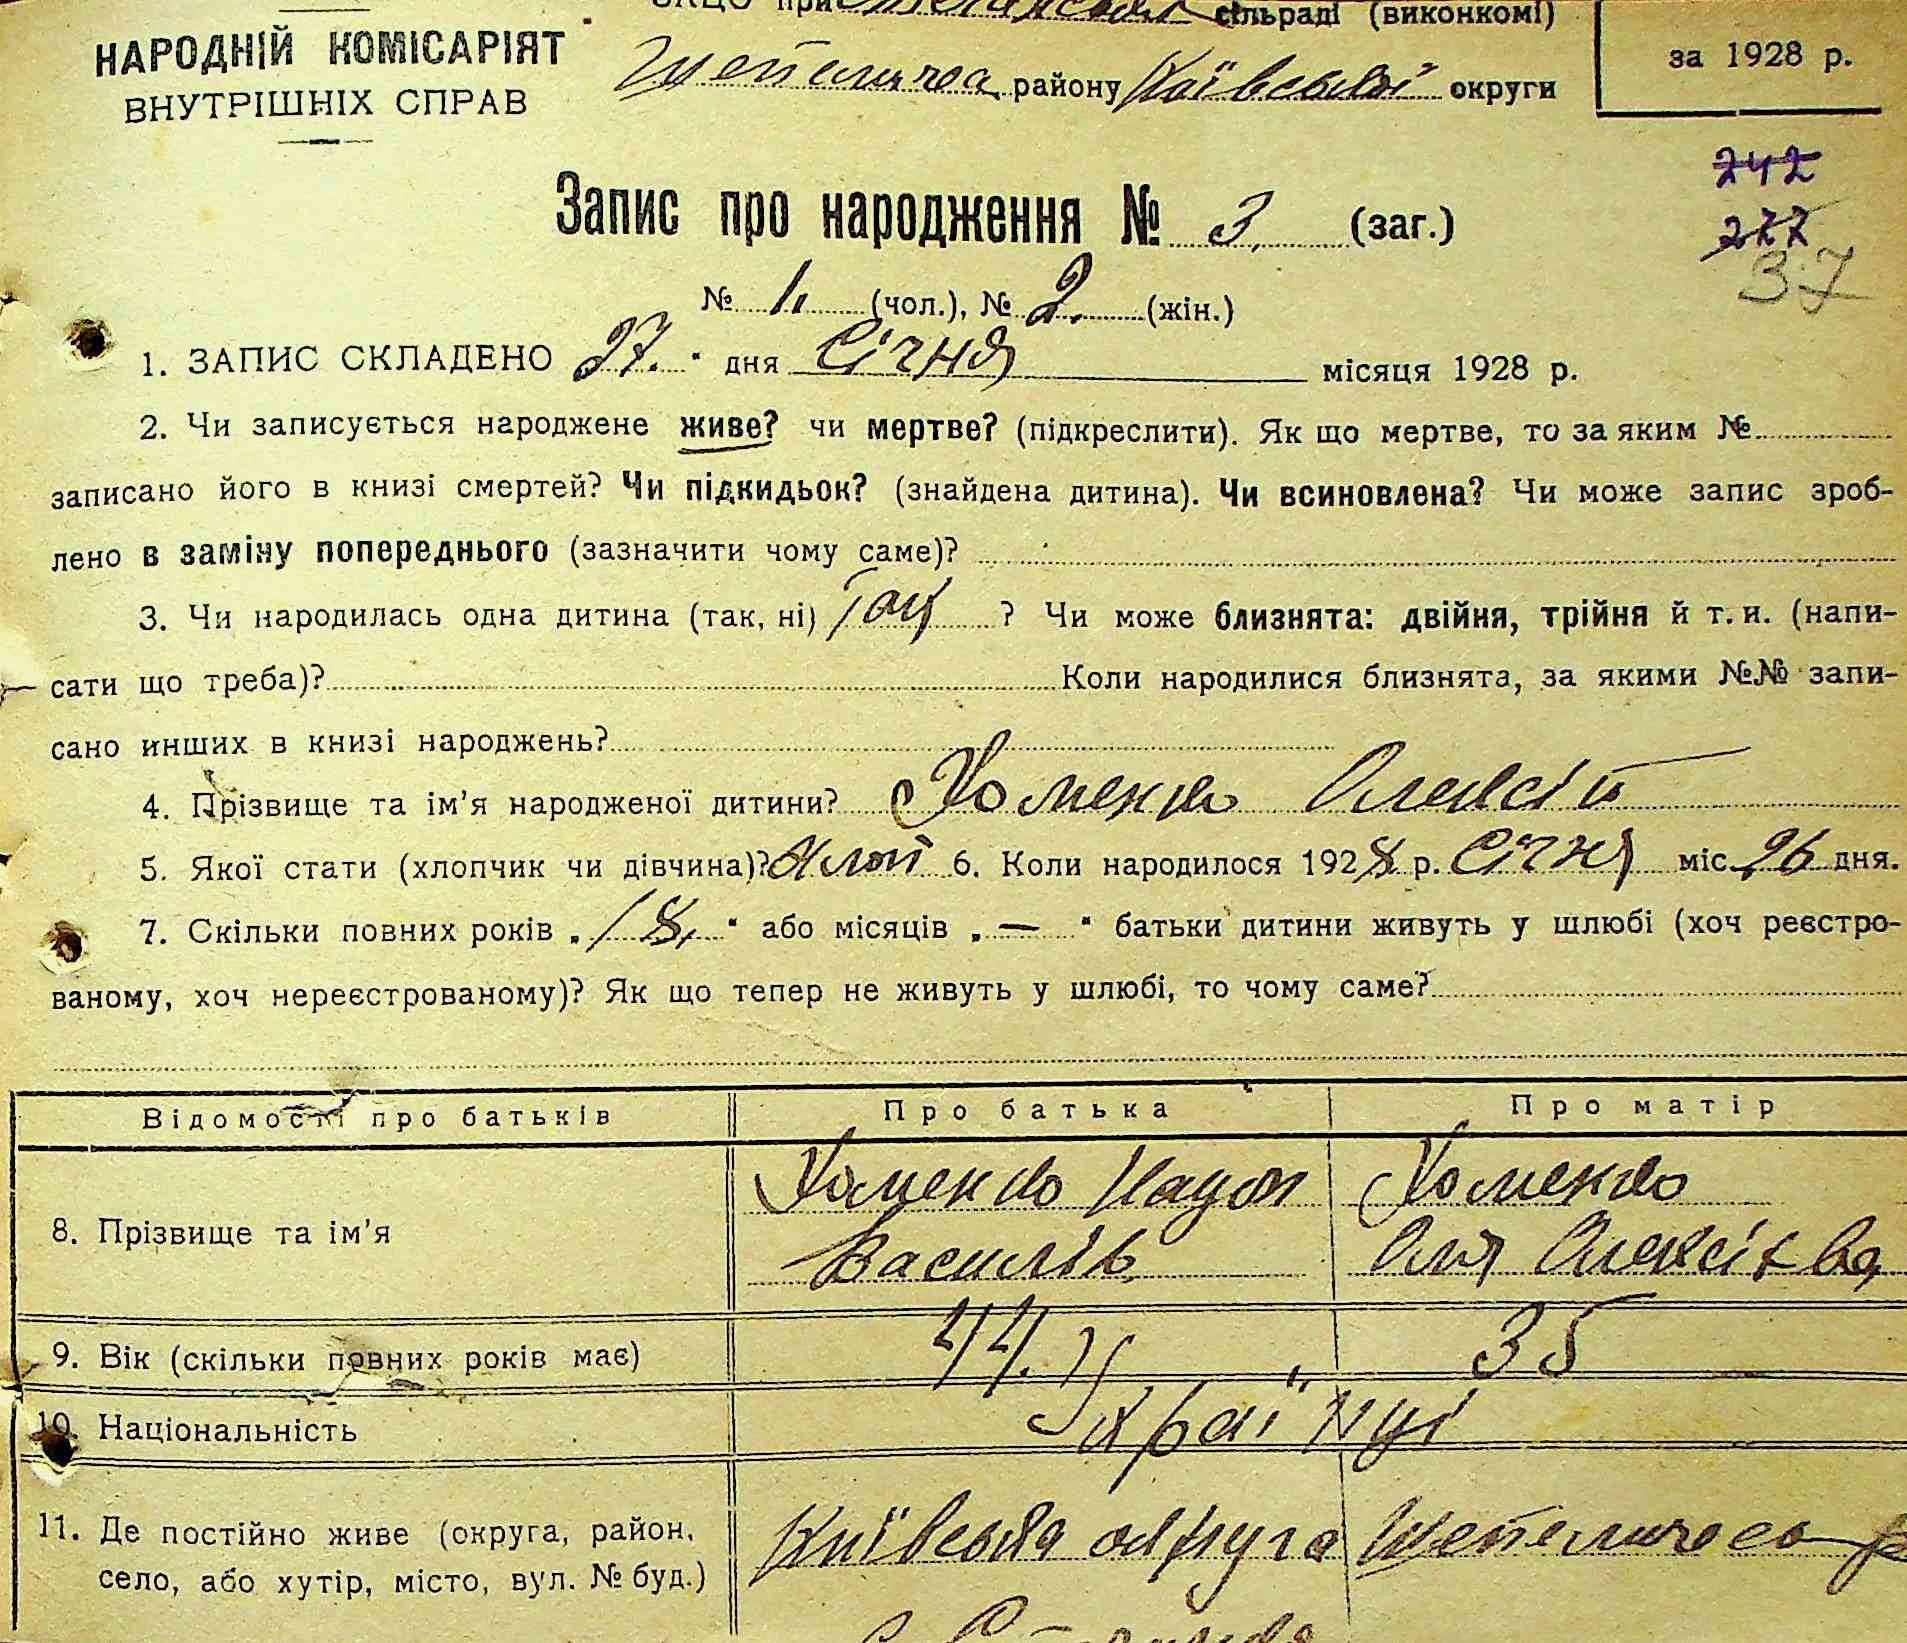 НАРОДНІЙ КОМІСАРІЯТ
ВНУТРІШНІХ СПРАВ
ЗАЦС при сільраді (виконкомі)
району Київської округи
за 1928 р.
242
277
37
Запис про народження № 3. (заг.)
№ 1. (чол.), № 2. (жін.)
1. ЗАПИС СКЛАДЕНО 27. " дня Січня місяця 1928 р.
2. Чи записується народжене живе? чи мертве? (підкреслити). Як що мертве, то за яким №
записано його в книзі смертей? Чи підкидьок? (знайдена дитина). Чи всиновлена? Чи може запис зроб-
лено в заміну попереднього (зазначити чому саме)?
3. Чи народилась одна дитина (так, ні) Так ? Чи може близнята: двійня, трійня й т. и. (напи-
сати що треба)? Коли народилися близнята, за якими №№ запи-
сано инших в книзі народжень?
4. Прізвище та ім'я народженої дитини? Хоменко Олексій
5. Якої стати (хлопчик чи дівчина)? 6. Коли народилося 1928 р. Січня міс. 26 дня.
7. Скільки повних років „ 18, " або місяців „ — " батьки дитини живуть у шлюбі (хоч реєстро-
ваному, хоч нереєстрованому)? Як що тепер не живуть у шлюбі, то чому саме?
Відомості про батьків Про батька Про матір
8. Прізвище та ім'я
Хоменко Наум
Василів
Хоменко
Оля Олексієва
9. Вік (скільки повних років має) 44. 35
10. Національність Українці
11. Де постійно живе (округа, район,
село, або хутір, місто, вул. № буд.)
Київська округа